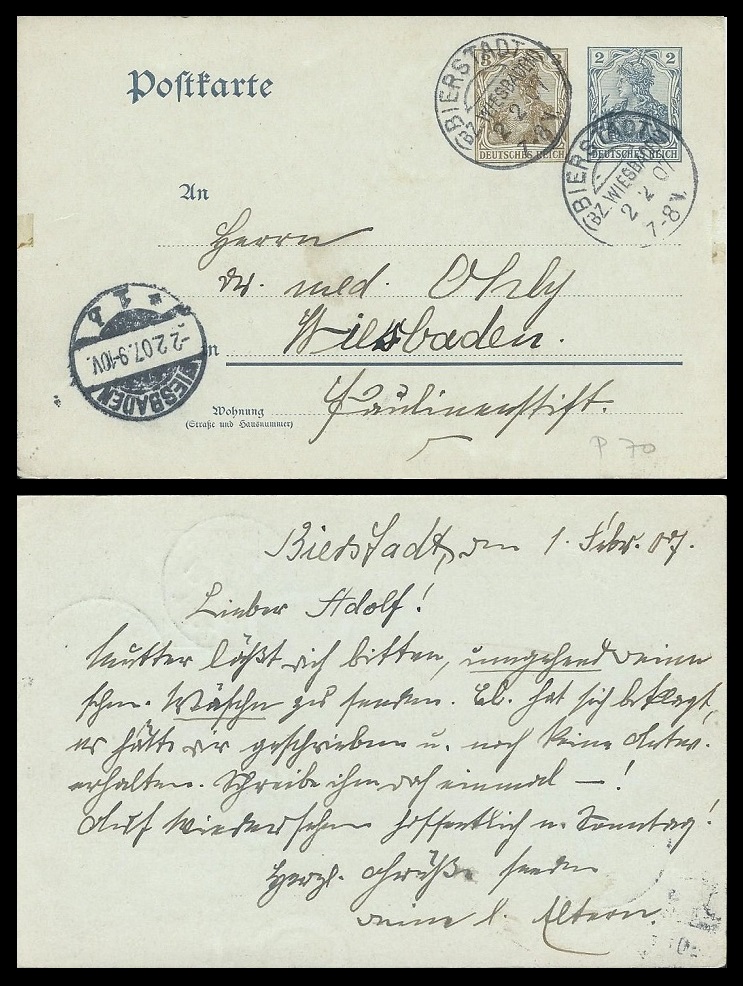 Postkarte
3 3
DEUTSCHES REICH
2 2
DEUTSCHES REICH
BIERSTADT
(BZ. WIESBADEN)
2 2 7
7-8 V.
BIERSTADT
(BZ. WIESBADEN)
2 2 07
7-8 V.
An
Herrn
Dr. med. Ohly
Wiesbaden.
in
WIESBADEN
-2.2.07.9-10V.
* 1 b
Wohnung
(Straße und Hausnummer)
Paulinenstift.
P 70
Bierstadt, den 1. Febr. 07.
Lieber Adolf!
Mutter läßt dich bitten, umgehend deine
schm. Wäsche zu senden. El. hat sich beklagt,
er hätte dir geschrieben u. noch keine Antw.
erhalten. Schreibe ihm doch einmal — !
Auf Wiedersehen hoffentlich n. Sonntag!
Herzl. Grüße senden
deine l. Eltern.